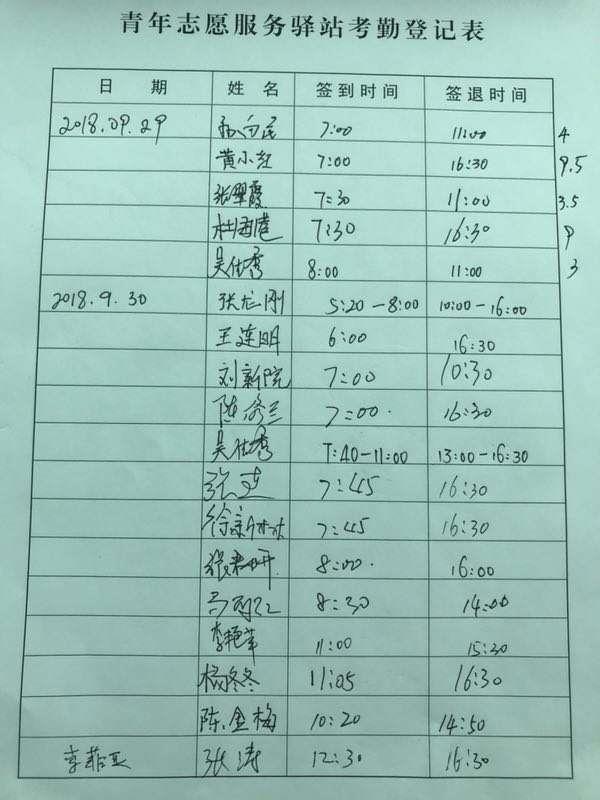 青年志愿服务驿站考勤登记表
日 期 姓 名 签到时间 签退时间
2018.09.29 7:00 11:00 4
黄小红 7:00 16:30 9.5
张翠霞 7:30 11:00 3.5
7:30 16:30 9
吴仕秀 8:00 11:00 3
2018.9.30 张龙刚 5:20-8:00 10:00-16:00
王连明 6:00 16:30
刘新院 7:00 10:30
陈 兰 7:00. 16:30
吴仕秀 7:40-11:00 13:00-16:30
张 7:45 16:30
徐 7:45 16:30
张 8:00. 16:00
马 8:30 14:00
李艳萍 11:00 15:30
杨冬冬 11:05 16:30
陈金梅 10:20 14:50
李菲亚 张涛 12:30 16:30